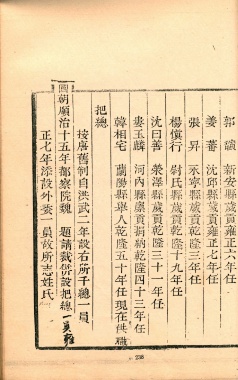 郭璥 新安縣歲貢雍正元年任
姜蕃 沈邱縣歲貢雍正七年任
張昇 永寧縣歲貢乾隆三年任
楊愼行 尉氏縣歲貢乾隆十九年任
沈曰善 滎澤縣歲貢乾隆三十一年任
婁玉麟 河內縣歲貢捐納乾隆四十三年任
韓相宅 蘭陽縣舉人乾隆五十年任現在供職
把總
按唐舊制自洪武二年設右所千總一員
國朝順治十五年都察院魏題請裁併設把總一員雍
正七年添設外委一員故所志姓氏
238